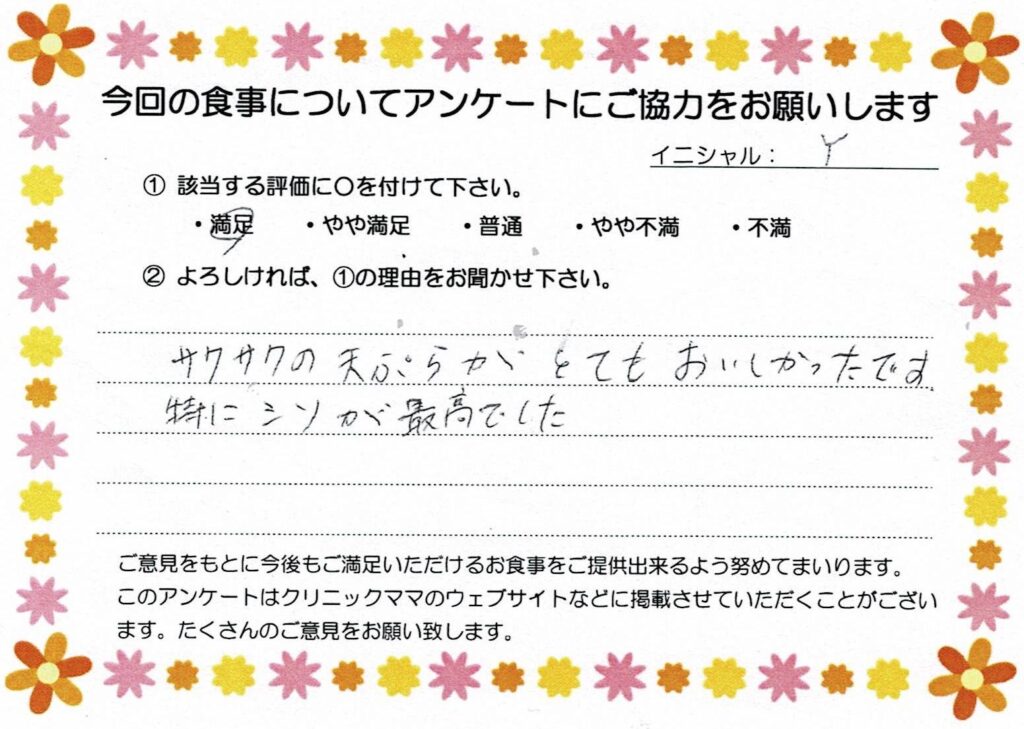 今回の食事についてアンケートにご協力をお願いします
イニシャル： Y
① 該当する評価に〇を付けて下さい。
・満足 ・やや満足 ・普通 ・やや不満 ・不満
② よろしければ、①の理由をお聞かせ下さい。
サクサクの天ぷらが とても おいしかったです
特に シソが 最高でした
ご意見をもとに今後もご満足いただけるお食事をご提供出来るよう努めてまいります。
このアンケートはクリニックママのウェブサイトなどに掲載させていただくことがござい
ます。たくさんのご意見をお願い致します。